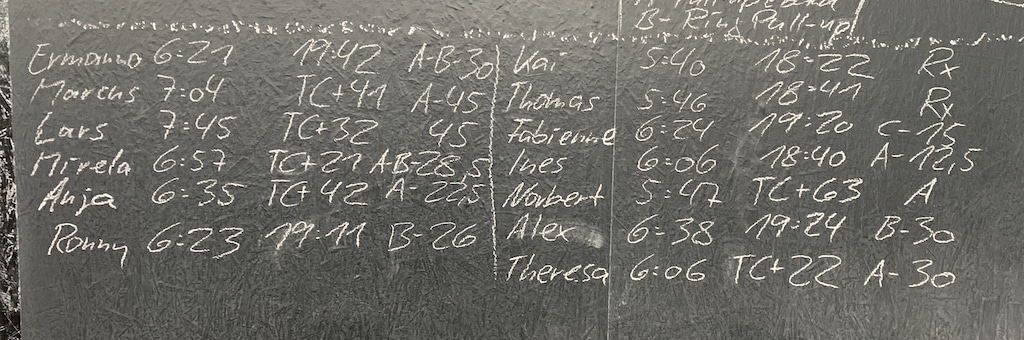 B- Ring Pull-up
Ermanno 6:21 19:42 A-B-30
Marcus 7:04 TC+41 A-45
Lars 7:45 TC+32 45
Mirela 6:57 TC+21 A-B-28,5
Anja 6:35 TC+42 A-22,5
Ronny 6:23 19:11 B-26
Kai 5:40 18:22 Rx
Thomas 5:46 18:41 Rx
Fabienne 6:24 19:20 C-15
Ines 6:06 18:40 A-12,5
Norbert 5:47 TC+63 A
Alex 6:38 19:24 B-30
Theresa 6:06 TC+22 A-30